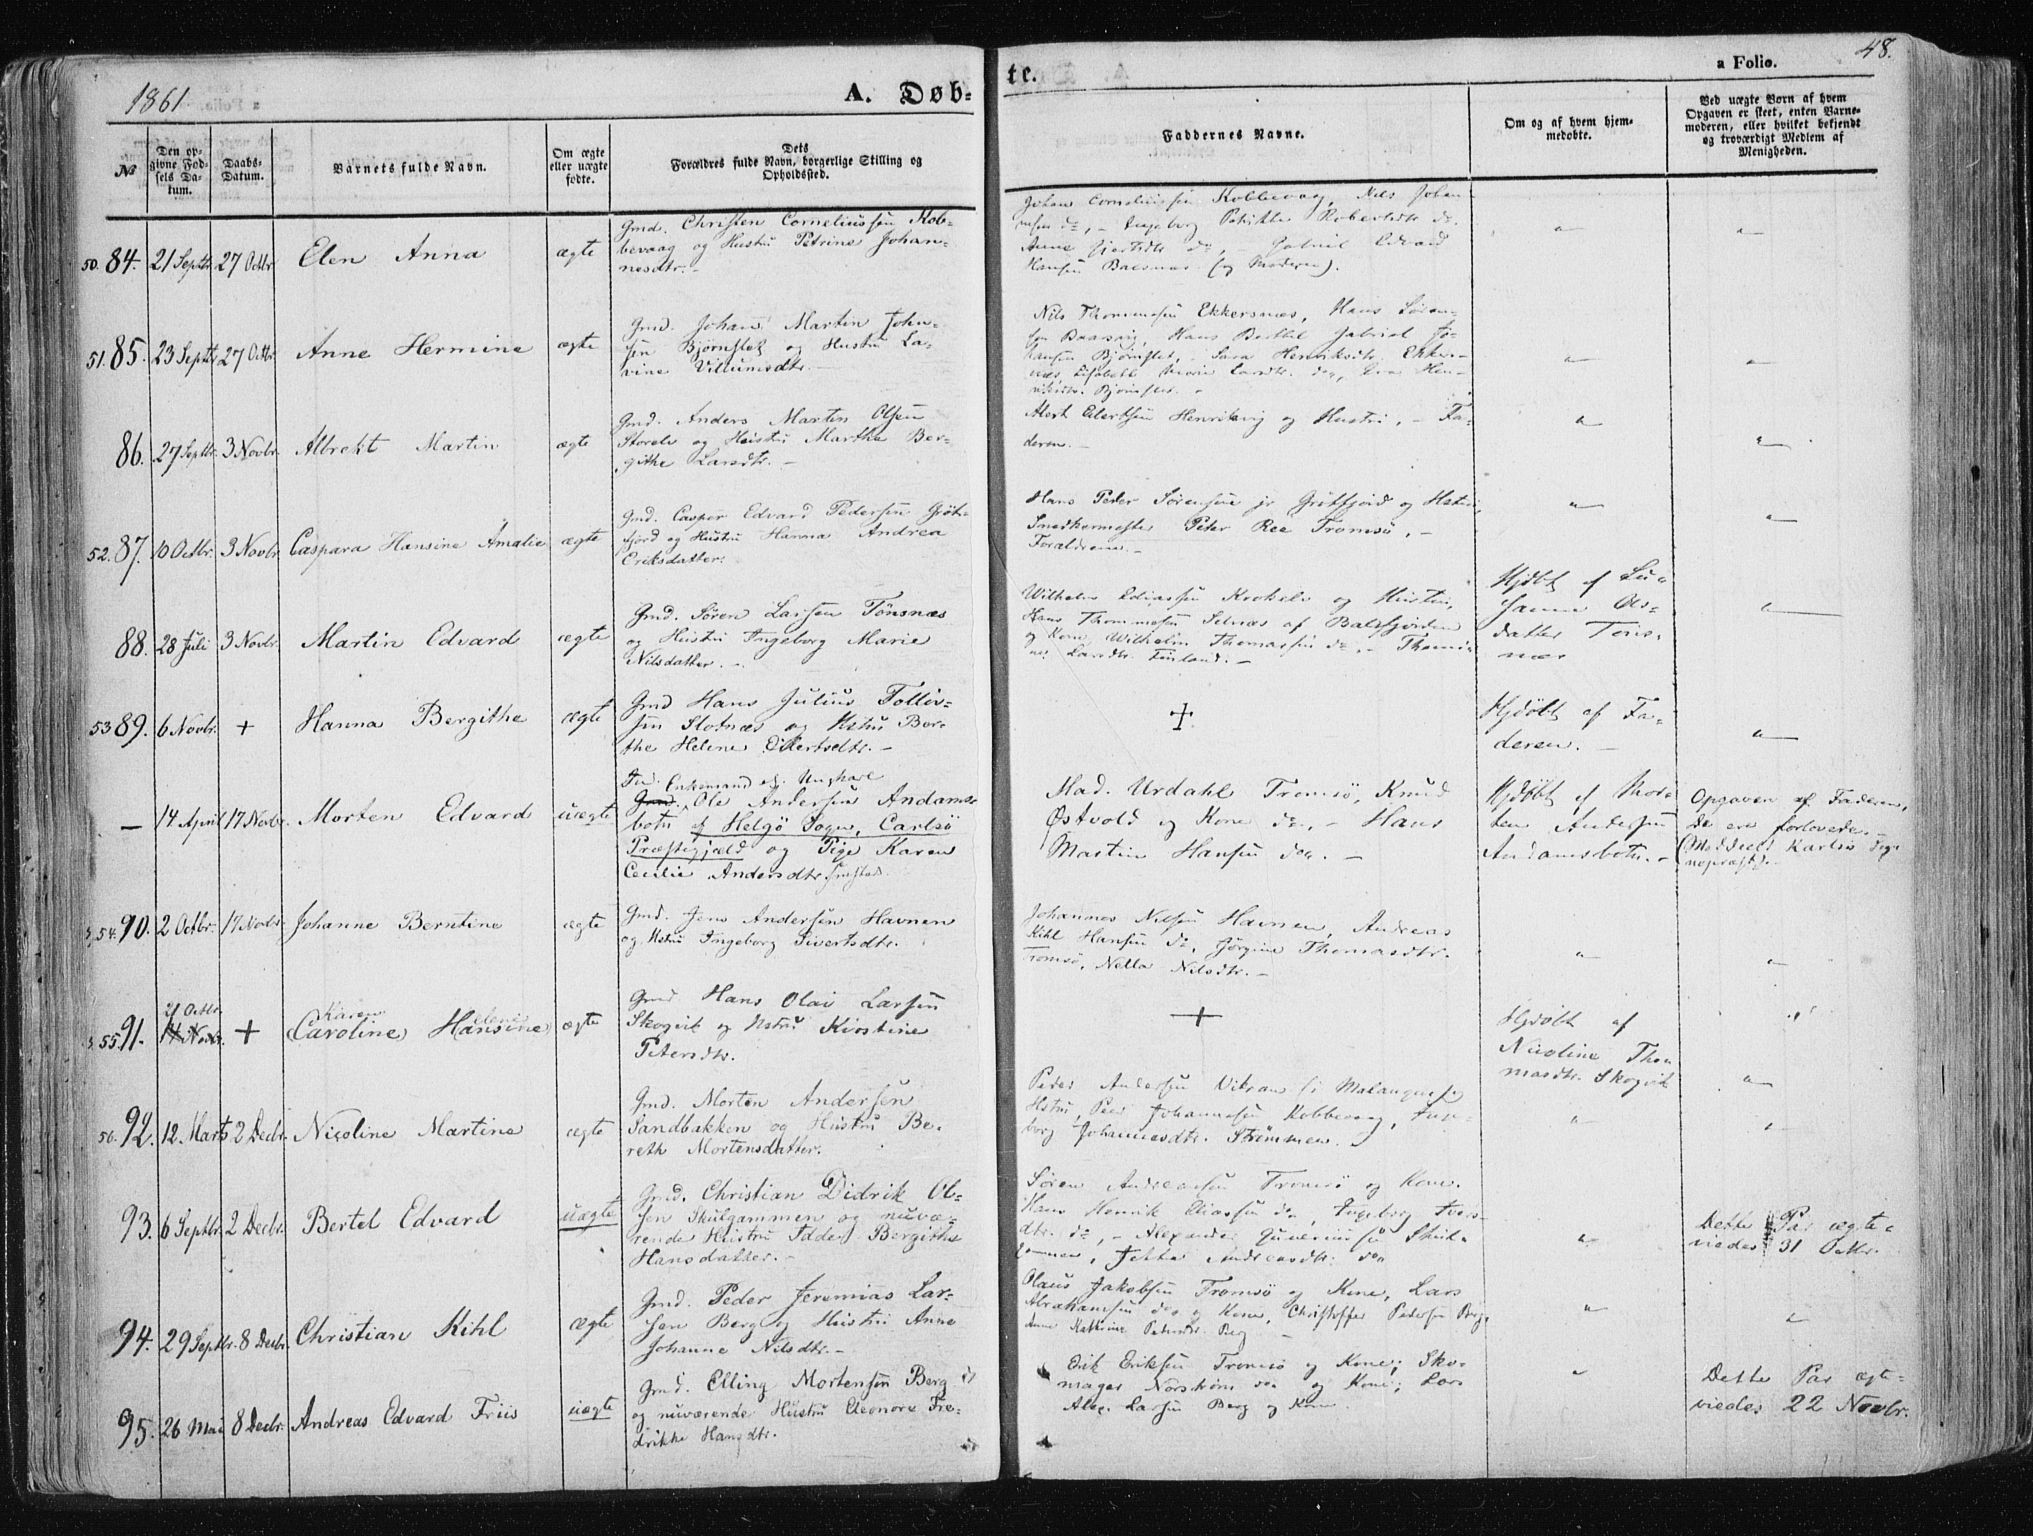 1861
A. Døb-
te.
a Folio.
48.
No
Den op-
givne Fød-
sels Da-
tum.
Daabs-
Datum.
Barnets fulde Navn.
Om ægte
eller uægte
fødte.
Dets
Forældres fulde Navn, borgerlige Stilling og
Opholdssted.
Faddernes Navne.
Om og af hvem hjem-
medøbte.
Ved uægte Børn af hvem
Opgaven er skeet, enten Barne-
moderen, eller hvilket bekjendt
og troværdigt Medlem af
Menigheden.
50. 84. 21 Septbr. 27 Octbr. Elen Anna ægte
Gmd. Christen Corneliussen Kob-
bevaag og Hustru Petrine Johan-
nesdtr. -
Johan Corneliussen Kobbevaag, Nils Johan-
nesen do, - Ingeborg Robertsdtr do.
Anne do, - Gabriel Edvard
Hansen (og Moderen).
51. 85. 23 Septbr 27 Octbr Anne Hermine ægte
Gmd. Johan Martin John-
sen Bjørnslet og Hustru La-
vine Villumsdtr.
Nils Thommesen Ekkersnæs, Hans Søren-
sen Hans Berthel Gabriel Jo-
hansen Bjørnslet, Sara Henriksdtr. Ekker-
næs, Lisabeth Marie Larsdtr. do, Hen-
riksdtr. Bjørnslet. -
86. 27 Septbr. 3 Novbr. Albrekt Martin ægte
Gmd. Anders Martin Olsen
Storelv og Hustru Martha Ber-
githe Larsdtr. -
Eilertsen Henrikvig og Hustru, - Fa-
deren. -
52. 87. 10 Octbr. 3 Novbr Caspara Hansine Amalie ægte
Gmd. Casper Edvard Pedersen Grøt-
fjord og Hustru Hanna Andrea
Eriksdatter.
Hans Peder Sørensen jr Grøtfjord og Hstru,
Snedkermester Peter Ree Tromsø, -
Forældrene. -
88. 28 Juli 3 Novbr. Martin Edvard ægte
Gmd. Søren Larsen Tønsnæs
og Hustru Ingeborg Marie
Nilsdatter. -
Wilhelm Eliassen Krokelv og Hustru,
Hans Thommesen Selnæs af Balsfjorden
og Kone, Wilhelm Thomassen do, - Thomi-
ne Larsdtr. Finland. -
Hjdøbt af Su-
sanne Ols-
datter Tøns-
næs
53 89. 6 Novbr. + Hanna Bergithe ægte
Gmd Hans Julius Tollev-
sen Slotnæs og Hstru Ber-
the Helene Eilertsdtr. -
+
Hjdøbt af Fa-
deren. -
- 14 April 17 Novbr. Morten Edvard uægte
Ind. Enkemand og Ungkarl
Gmd. Ole Andersen Andams-
botn af Helgø Sogn, Carlsø
Præstegjæld og Pige Karen
Cecilie Andersdtr.
Mad. Urdahl Tromsø, Knud
Østvold og Kone do, - Hans
Martin Hansen do. -
Hjdøbt af Mor-
ten Andersen
Andamsbotn. -
Opgaven af Faderen,
De ere forlovede. -
(Meddeelt Karlsø Sog-
nepræst). -
54. 90. 2 Octbr. 17 Novbr. Johanne Berntine ægte
Gmd. Jens Andersen Havnen
og Hstru Ingeborg Sivertsdtr.
Johannes Nilsen Havnen, Andreas
Kihl Hansen do, Jørgine Thomasdtr.
Tromsø, Nella Nilsdtr. -
21 Octbr.
Karen
55. 91. 14 Novbr. + Caroline Hansine ægte
Gmd Hans Olai Larsen
Skogvik og Hstru Kirstine
Petersdtr.
+
Hjdøbt af
Nicoline Tho-
masdtr. Skogvik
56. 92. 12 Marts 2 Decbr. Nicoline Martine ægte
Gmd. Morten Andersen
Sandbakken og Hustru Be-
reth Mortensdatter.
Peder Andersen Vikran (i Malangen) og
Hstru, Peder Johannesen Kobbevaag, Inge-
borg Johannesdtr. Strømmen.
93. 6 Septbr. 2 Decbr. Bertel Edvard uægte
Gmd. Christian Didrik Ol-
sen Skulgammen og nuvæ-
rende Hustru Bergithe
Hansdatter. -
Søren Andreassen Tromsø og Kone,
Hans Henrik Eliassen do, Ingeborg Ivers-
dtr. do, - Alexander Skul-
gammen, Andreasdtr. do
Dette Par ægte-
viedes 31 Oktbr.
94. 29 Septbr. 8 Decbr. Christian Kihl ægte
Gmd. Peder Jeremias Lar-
sen Berg og Hustru Anne
Johanne Nilsdtr. -
Olaus Jakobsen Tromsø og Kone, Lars
Abrahamsen do og Kone, Christoffer Pedersen Berg,
Anne Kathrine Petersdtr. Berg
95. 26 Mai 8 Decbr. Andreas Edvard Friis uægte
Gmd. Elling Mortensen Berg
og nuværende Hustru Eleonore Fre-
drikke Hansdtr.
Erik Eriksen Tromsø og Kone, Sko-
mager Norstrøm do og Kone, Lars
Alex. Larsen Berg og Kone.
Dette Par ægte-
viedes 22 Novbr.